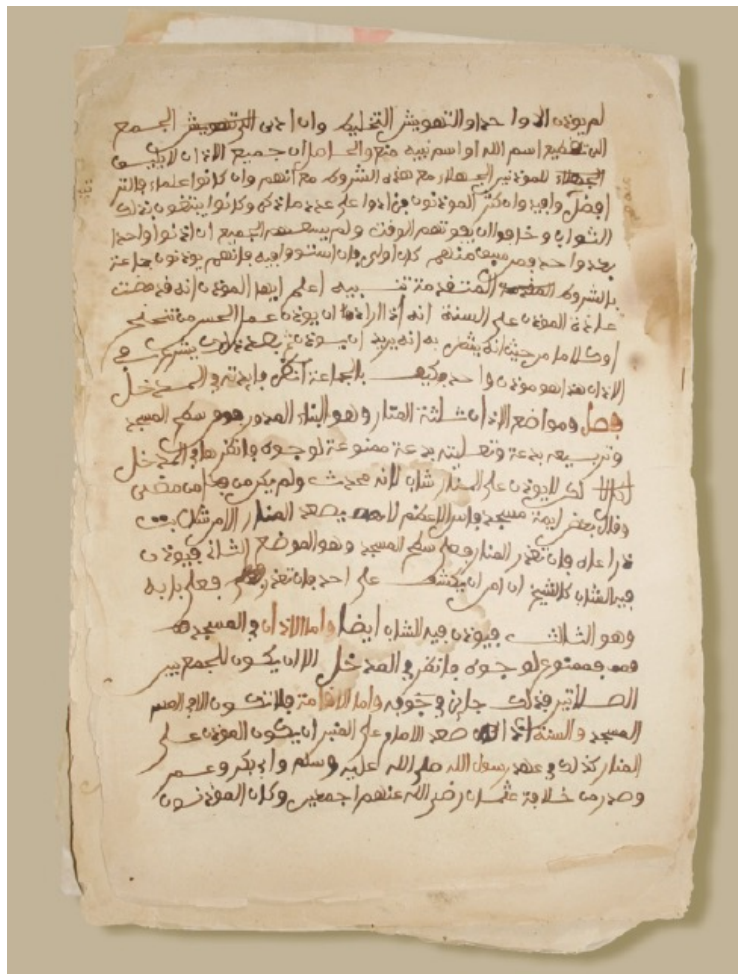 لم يوذن الا واحد او التهويش التخليط وان ادى التهويش الجمع
الى تقطيع اسم الله او اسم نبيه منع والحاصل ان جميع الاذان لا يليق
للموذنين الجهلاء مع هذه الشروط مع انهم وان كانوا علماء بالتر
افضل وافيد وان كثر الموذنون فزادوا على عدد ما ذكر وكانوا يبتغون بذلك
الثواب وخافوا ان يفوتهم الوقت ولم يسعهم الجميع ان اذنوا واحدا
بعد واحد فمن سبق منهم كان اولى فان استووا فيه فانهم يوذنون جماعة
بالشروط المتقدمة تنبيه اعلم ايها الموذن انه قد مضت
عادة الموذن على السنة انه اذا اراد ان يوذن عمل الحس من تنحنح
او كلام من حيث انه يشعر به انه يريد ان يوذن ثم بعد ذلك يشرع في
الاذان هذا هو موذن واحد فكيف بالجماعة انظر فايدته في المدخل
فصل ومواضع الاذان ثلثة المنار وهو البناء المدور فوق سطح المسجد
وتربيعه بدعة وتعليته بدعة ممنوعة لوجوه فانظرها في المدخل
لكن لا يوذن على المنار شاب لانه محدث ولم يكن من فعل من مضى
وقال بعض ايمة مسجد فاس الاعظم لا يصعد المنار الا من شاب
ذراعاه فان تعذر المنار فعلى سطح المسجد وهو الموضع الثاني فيوذن
فيه الشاب كالشيخ ان امن ان يكشف على احد فان تعذر فعلى بابه
وهو الثالث فيوذن فيه الشاب ايضا واما الاذان في المسجد
فممنوع لوجوه فانظر في المدخل الا ان يكون للجمع بين
الصلاتين فذلك جائز في جوفه واما الاقامة فلا تكون الا في
المسجد والسنة اذا صعد الامام على المنبر ان يكون الموذن على
المنار كذلك في عهد رسول الله صلى الله عليه وسلم وابي بكر وعمر
وصدر من خلافة عثمان رضي الله عنهم اجمعين وكان الموذنون